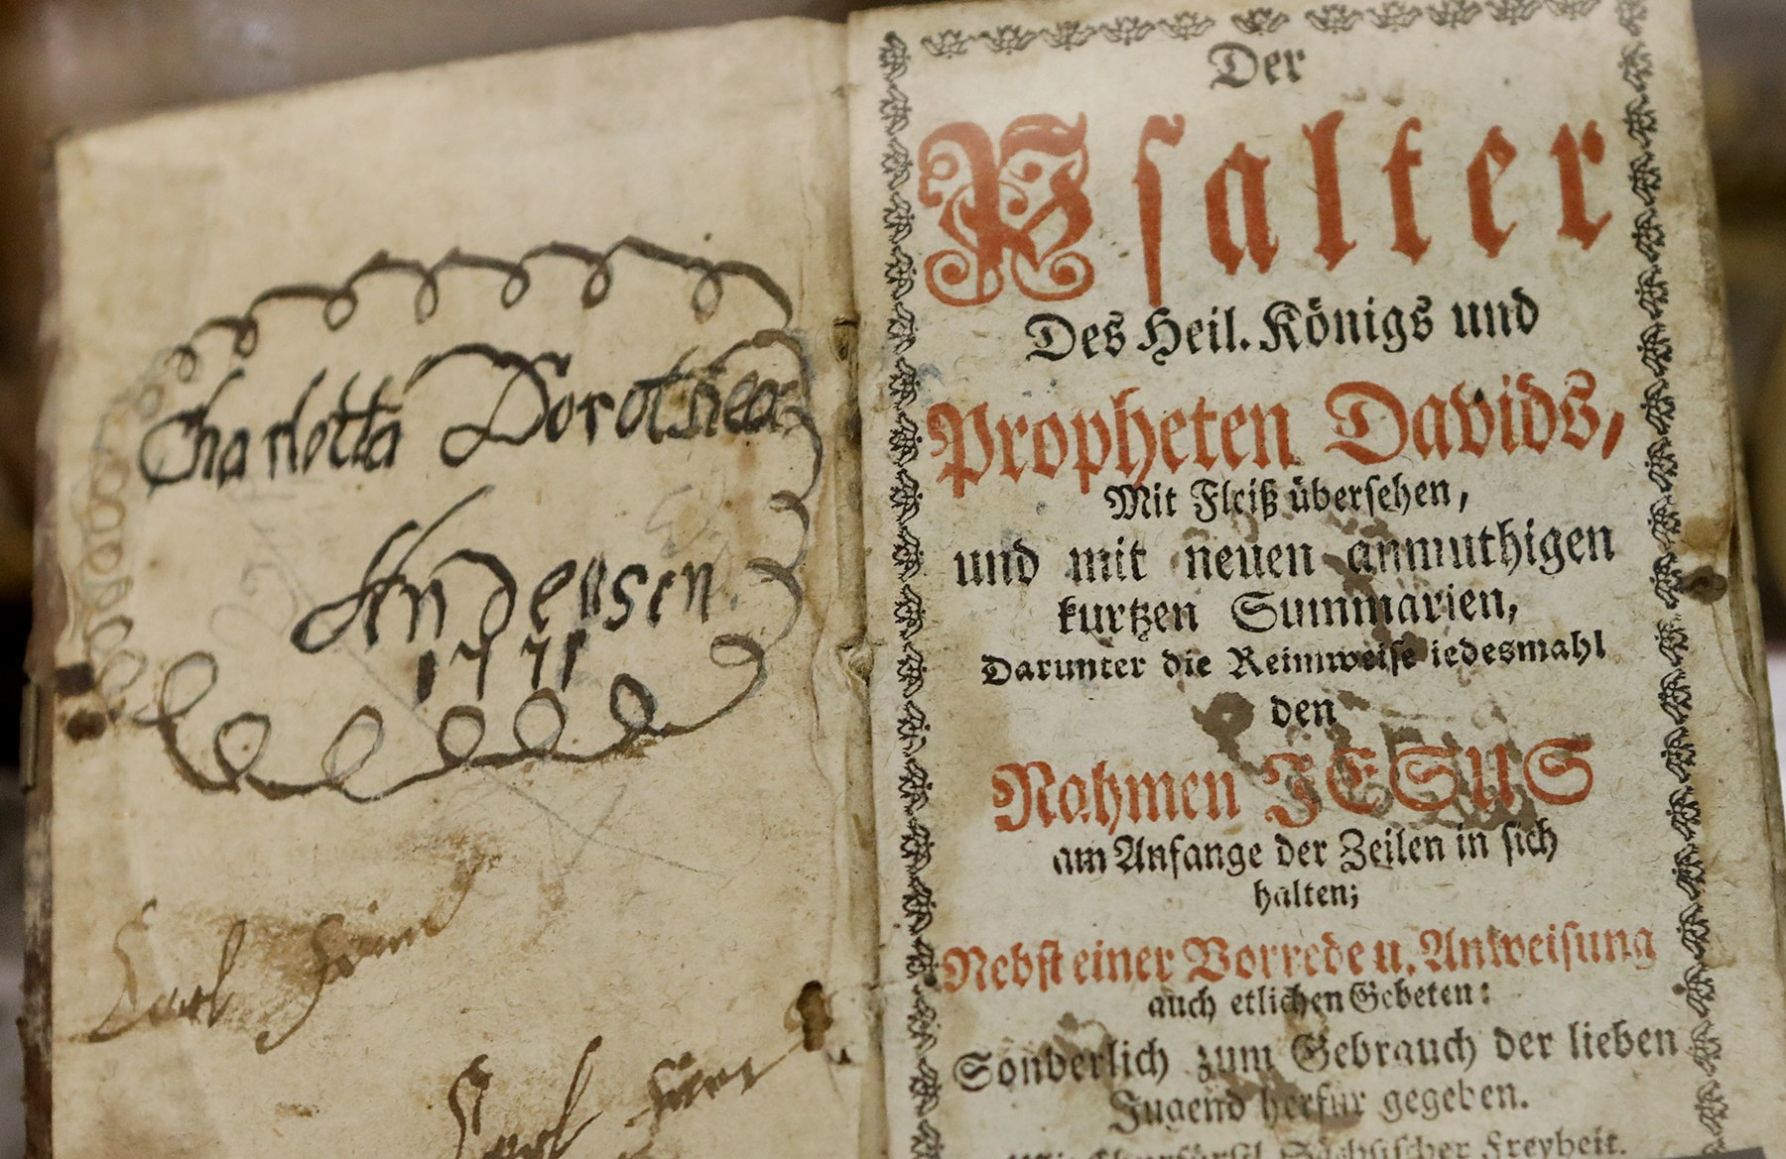 Charlotta Dorothea
Andersen
1771
Carl
Carl
Der
Psalter
Des Heil. Königs und
Propheten Davids,
Mit Fleiß übersehen,
und mit neuen anmuthigen
kurtzen Summarien,
Darunter die Reimweise iedesmahl
den
Nahmen JESUS
am Anfange der Zeilen in sich
halten;
Nebst einer Vorrede u. Anweisung
auch etlichen Gebeten:
Sonderlich zum Gebrauch der lieben
Jugend herfür gegeben.
Sächsischer Freyheit.